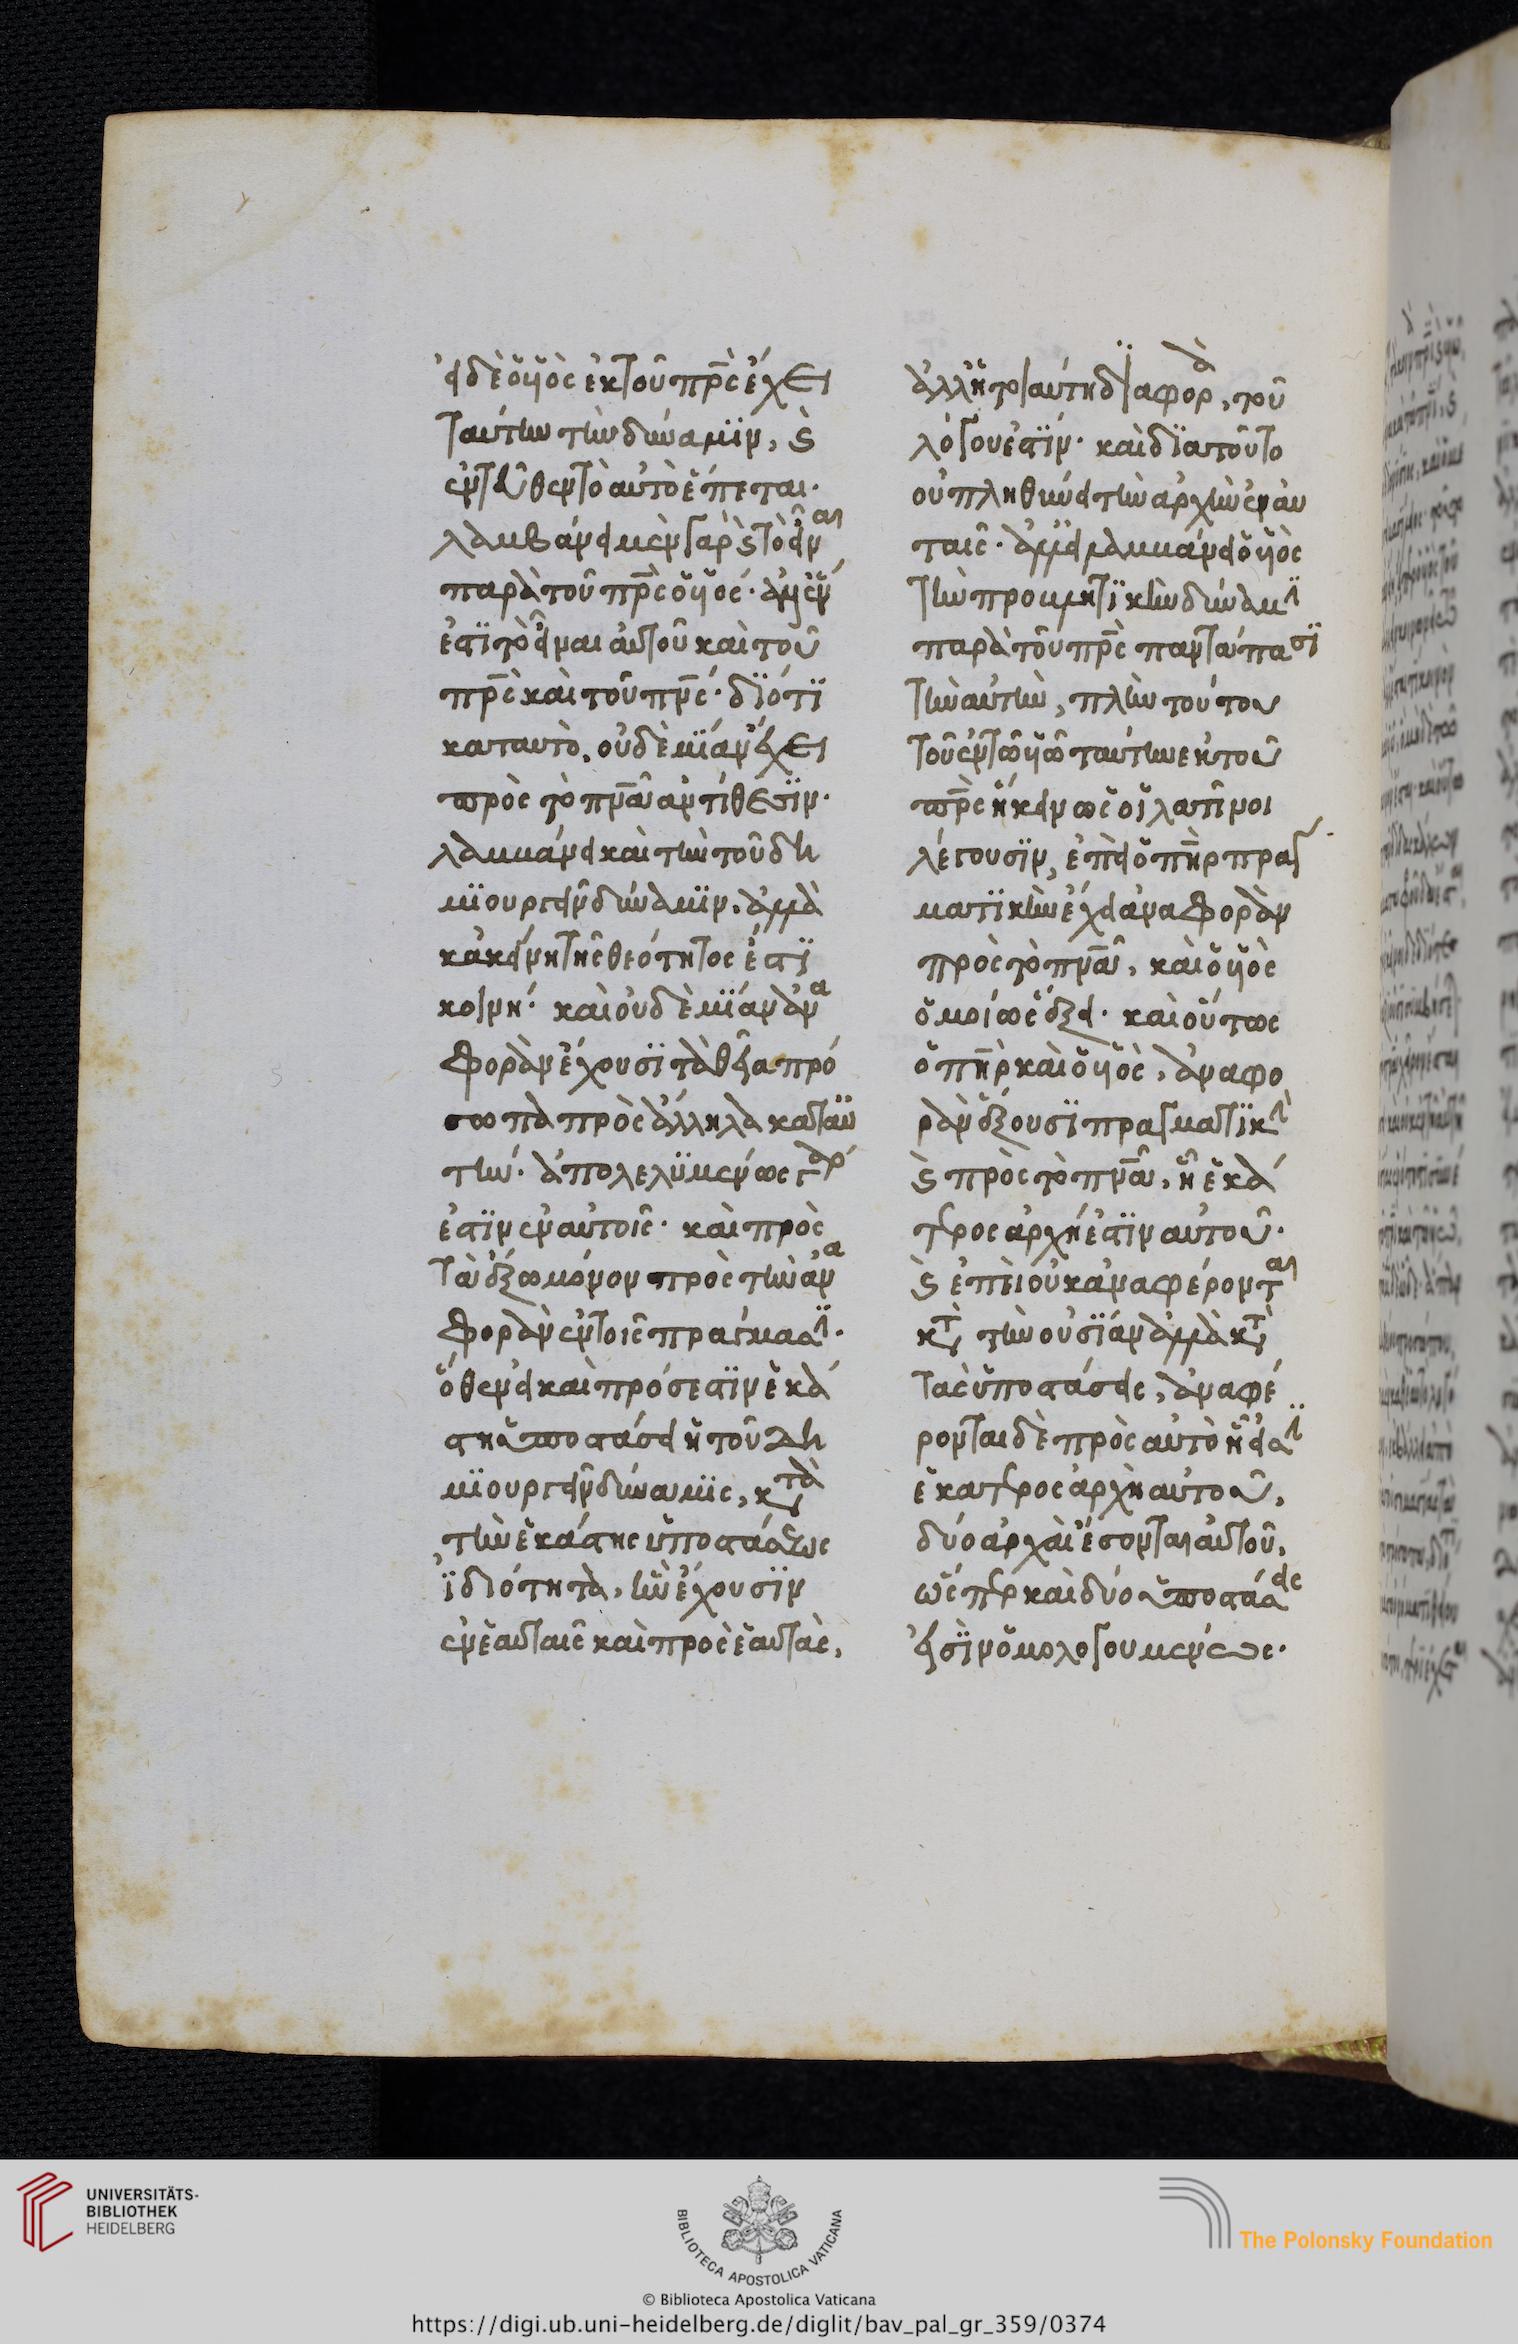 εἰ δὲ ὁ υἱὸς ἐκ τοῦ πρ̅ς ἔχει
ταύτην τὴν δύναμϊν, καὶ
ἐντεῦθεν τὸ αὐτὸ ἕπεται·
λαμβάνει μὲν γὰρ καὶ τὸ εἶναι
παρὰ τοῦ πρ̅ς ὁ υἱός· ἀλλ' ἕν
ἐστϊ τὸ εἶναι αὐτοῦ καὶ τοῦ
πρ̅ς καὶ τοῦ πν̅ς· δϊότϊ
καταυτὸ, οὐδὲ μϊὰν ἔχει
πρὸς τὸ πν̅α ἀντίθεσϊν·
λαμβάνει καὶ τὴν τοῦ δη
μϊουργεῖν δύναμϊν, ἀλλὰ
κἀκείνη τῆς θεότητος ἐστϊ
κοινή· καὶ οὐδὲ μϊὰν ἀνα
φορὰν ἔχουσϊ τὰ θεῖα πρό
σωπα πρὸς ἄλληλα κατ' αὐ
τήν· ἀπολελϋμένως γάρ
ἐστϊν ἐν αὐτοῖς· καὶ πρὸς
τὰ ἔξω μόνον πρὸς τὴν ἀνα
φορὰν ἐν τοῖς πράγμασϊ·
ὅθεν εἰ καὶ πρόσεστϊν ἑκά
στη ὑποστάσει ἡ τοῦ δη
μϊουργεῖν δύναμϊς, κατὰ
τὴν ἑκάστης ὑποστάσεως
ἰδιότητα, ἣν ἔχουσϊν
ἐν ἑαυταῖς καὶ πρὸς ἑαυτὰς,
ἀλλ' ἡ τοιαύτη δϊαφορὰ, τοῦ
λόγου ἐστϊν· καὶ δϊατοῦτο
οὐ πληθύνει τὴν ἀρχὴν ἐν αὐ
ταῖς· ἀλλ' εἰ λαμβάνει ὁ υἱὸς
τὴν προβλητϊκὴν δύναμϊ
παρὰ τοῦ πρ̅ς παντάπασϊ
τὴν αὐτὴν, πλὴν τούτου
τοῦ ἐν τῶ υἱῶ ταύτην ἐκ τοῦ
πρ̅ς ἥκειν ὡς οἱ λατῖνοι
λέγουσϊν, ἐπεὶ ὁ πη̅ρ πραγ
ματϊκὴν ἔχει ἀναφορὰν
πρὸς τὸ πν̅α, καὶ ὁ υἱὸς
ὁμοίως ἕξει· καὶ οὕτως
ὁ πη̅ρ καὶ ὁ υἱὸς, ἀναφο
ρὰν ἕξουσϊ πραγματϊκὴ
καὶ πρὸς τὸ πν̅α, ἧ ἑκά
τερος ἀρχή ἐστϊν αὐτοῦ·
καὶ ἐπεὶ οὐκ ἀναφέρονται
κατὰ τὴν οὐσϊαν ἀλλὰ κατὰ
τὰς ὑποστάσεις, ἀναφέ
ρονται δὲ πρὸς αὐτὸ ἧ εἰσϊ
ἑκάτερος ἀρχὴ αὐτοῦ,
δύο ἀρχαὶ ἔσονται αὐτοῦ,
ὥσπερ καὶ δύο ὑποστάσεις
εἰσϊν ὁμολογουμένως·
UNIVERSITÄTS-
BIBLIOTHEK
HEIDELBERG
BIBLIOTECA APOSTOLICA VATICANA
The Polonsky Foundation
© Biblioteca Apostolica Vaticana
https://digi.ub.uni-heidelberg.de/diglit/bav_pal_gr_359/0374